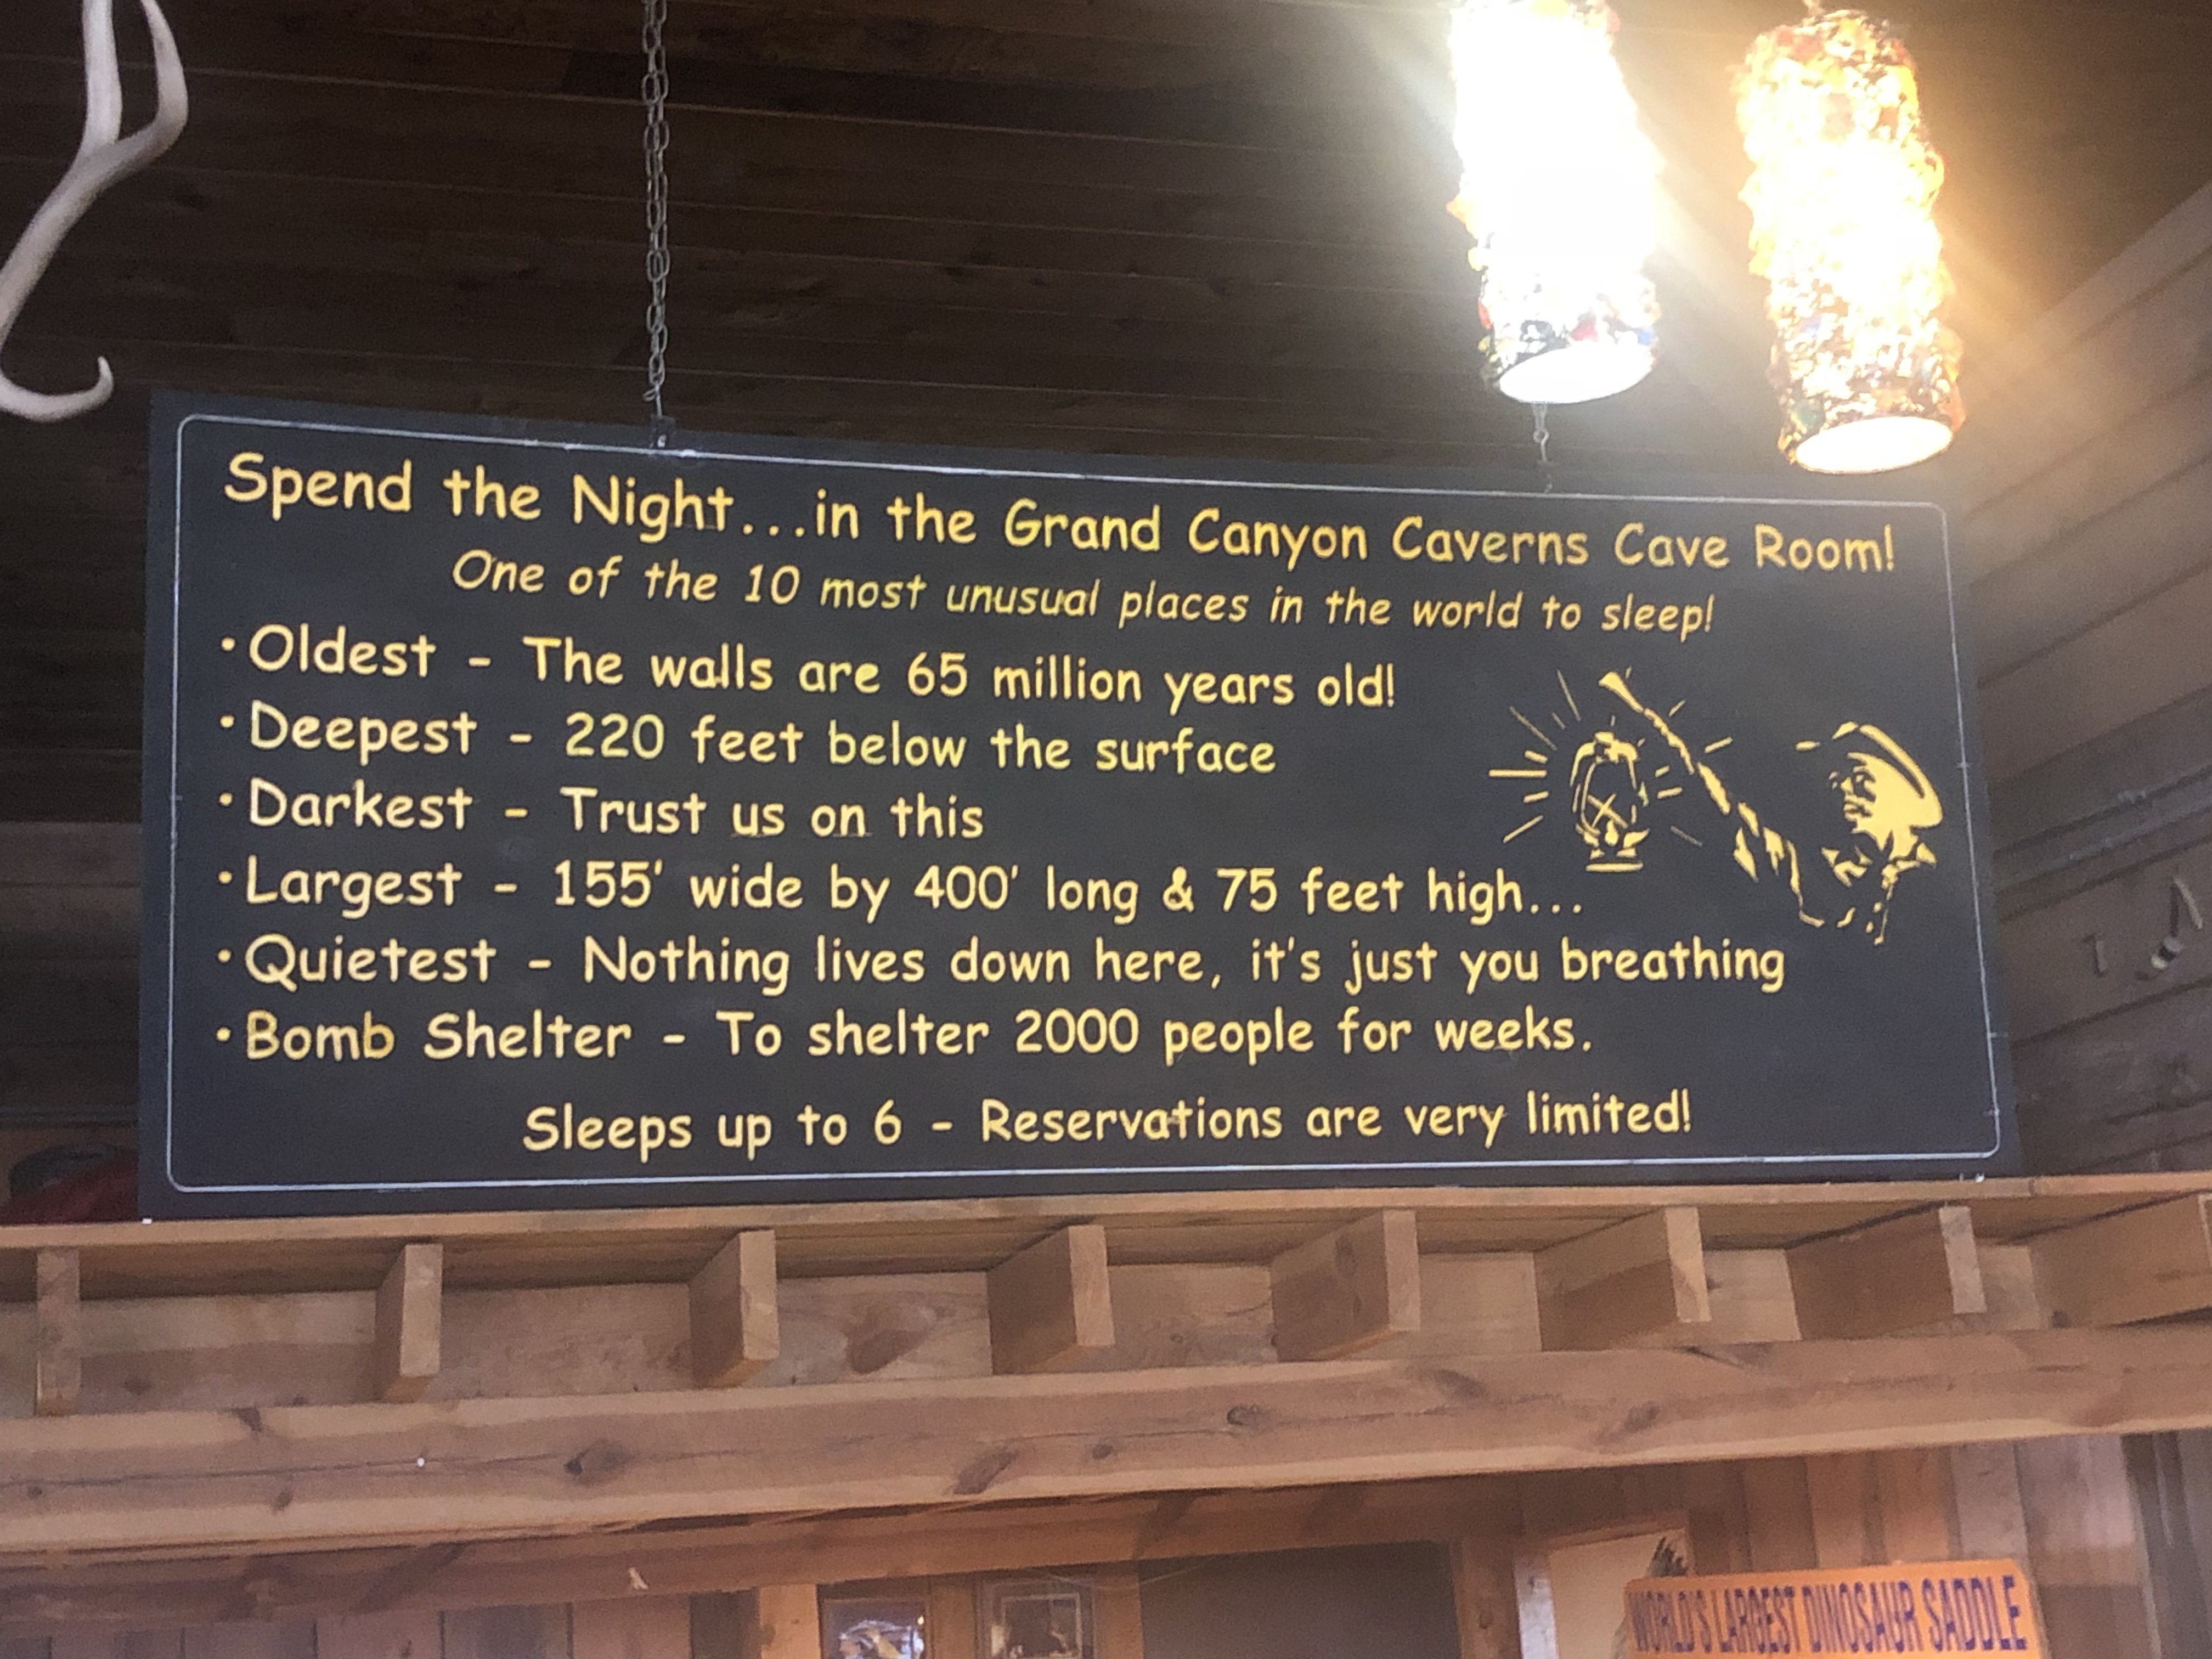 Spend the Night...in the Grand Canyon Caverns Cave Room!
One of the 10 most unusual places in the world to sleep!
• Oldest - The walls are 65 million years old!
• Deepest - 220 feet below the surface
• Darkest - Trust us on this
• Largest - 155' wide by 400' long & 75 feet high...
• Quietest - Nothing lives down here, it's just you breathing
• Bomb Shelter - To shelter 2000 people for weeks.
Sleeps up to 6 - Reservations are very limited!
WORLD'S LARGEST DINOSAUR SADDLE